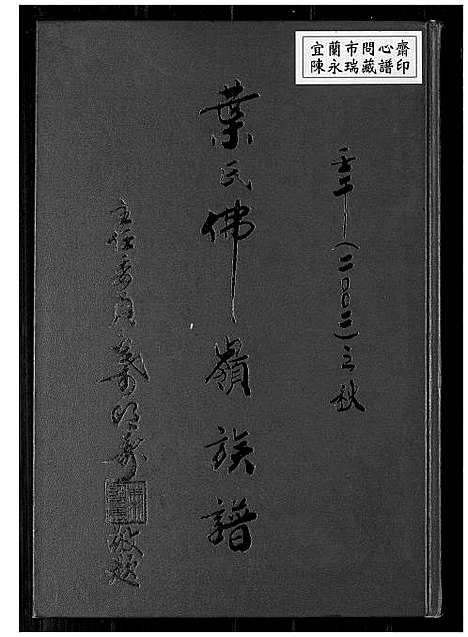 宜蘭市問心齋
陳永瑞藏譜印
壬午(二〇〇二)立秋
葉氏佛嶺族譜
主任委員葉明壽敬題